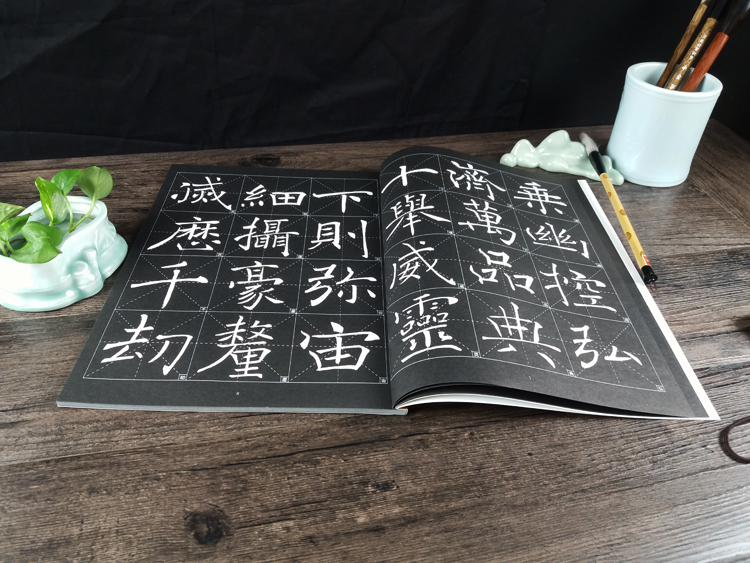 乘幽控弘
濟萬品典
十舉威靈
下則弥宙
細攝豪釐
滅歷千劫